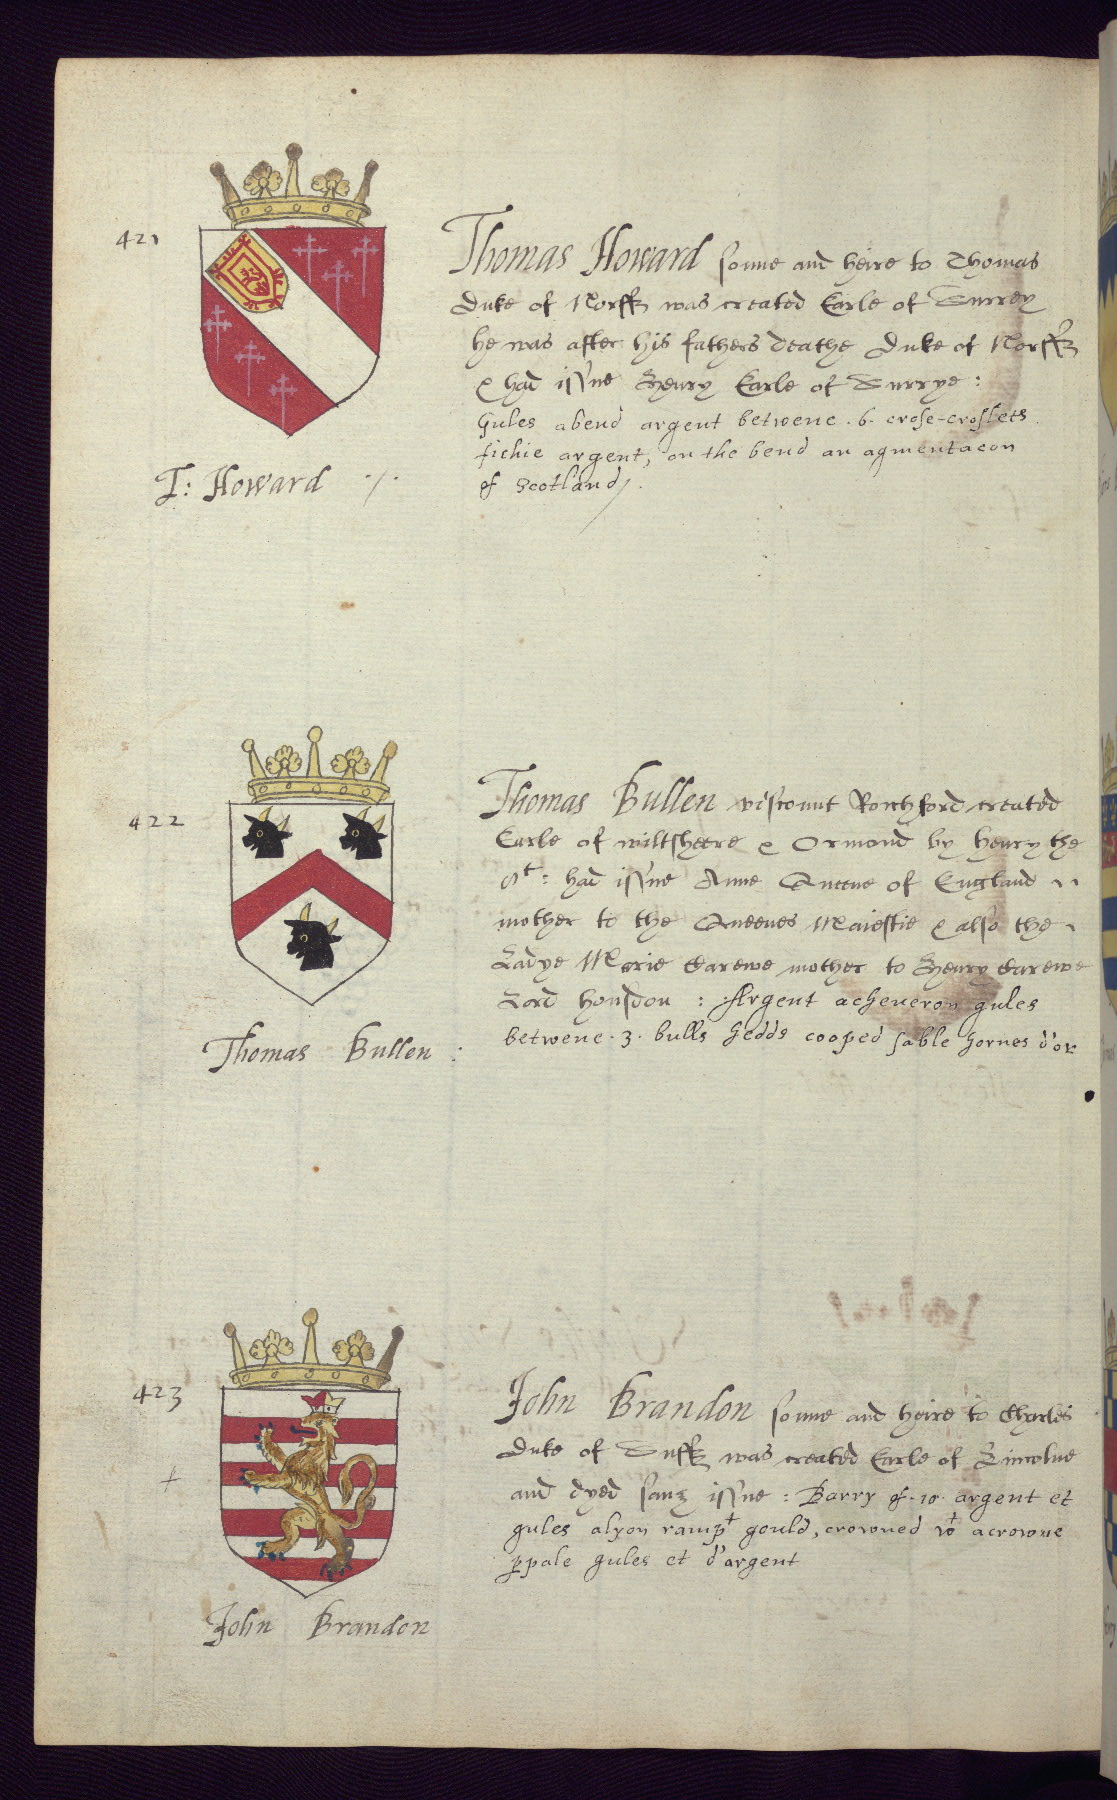 421
Thomas Howard sonne and heire to Thomas
Duke of Norff was created Earle of Surrey
he was after his fathers deathe Duke of Norff
& had issue Henry Earle of Surrye :
Gules a bend argent betwene .6. crose-croslets
fichie argent, on the bend an agmentacon
of Scotland/.
T: Howard ./.
422
Thomas Bullen viscount Rochford created
Earle of wiltsheere & Ormond by Henry the
8t : had issue Anne Queene of England
mother to the Queenes Maiestie & also the
Ladye Marie Carewe mother to Henry Carewe
Lord Honsdon : Argent a cheueron gules
betwene .3. bulls hedds cooped sable hornes d'or
Thomas Bullen :
423
John Brandon sonne and heire to Charles
Duke of Suff was created Earle of Lincolne
and dyed sanz issue : Barry of .10. argent et
gules a lyon rampt gould, crowned wt a crowne
ppale gules et d'argent
+
John Brandon